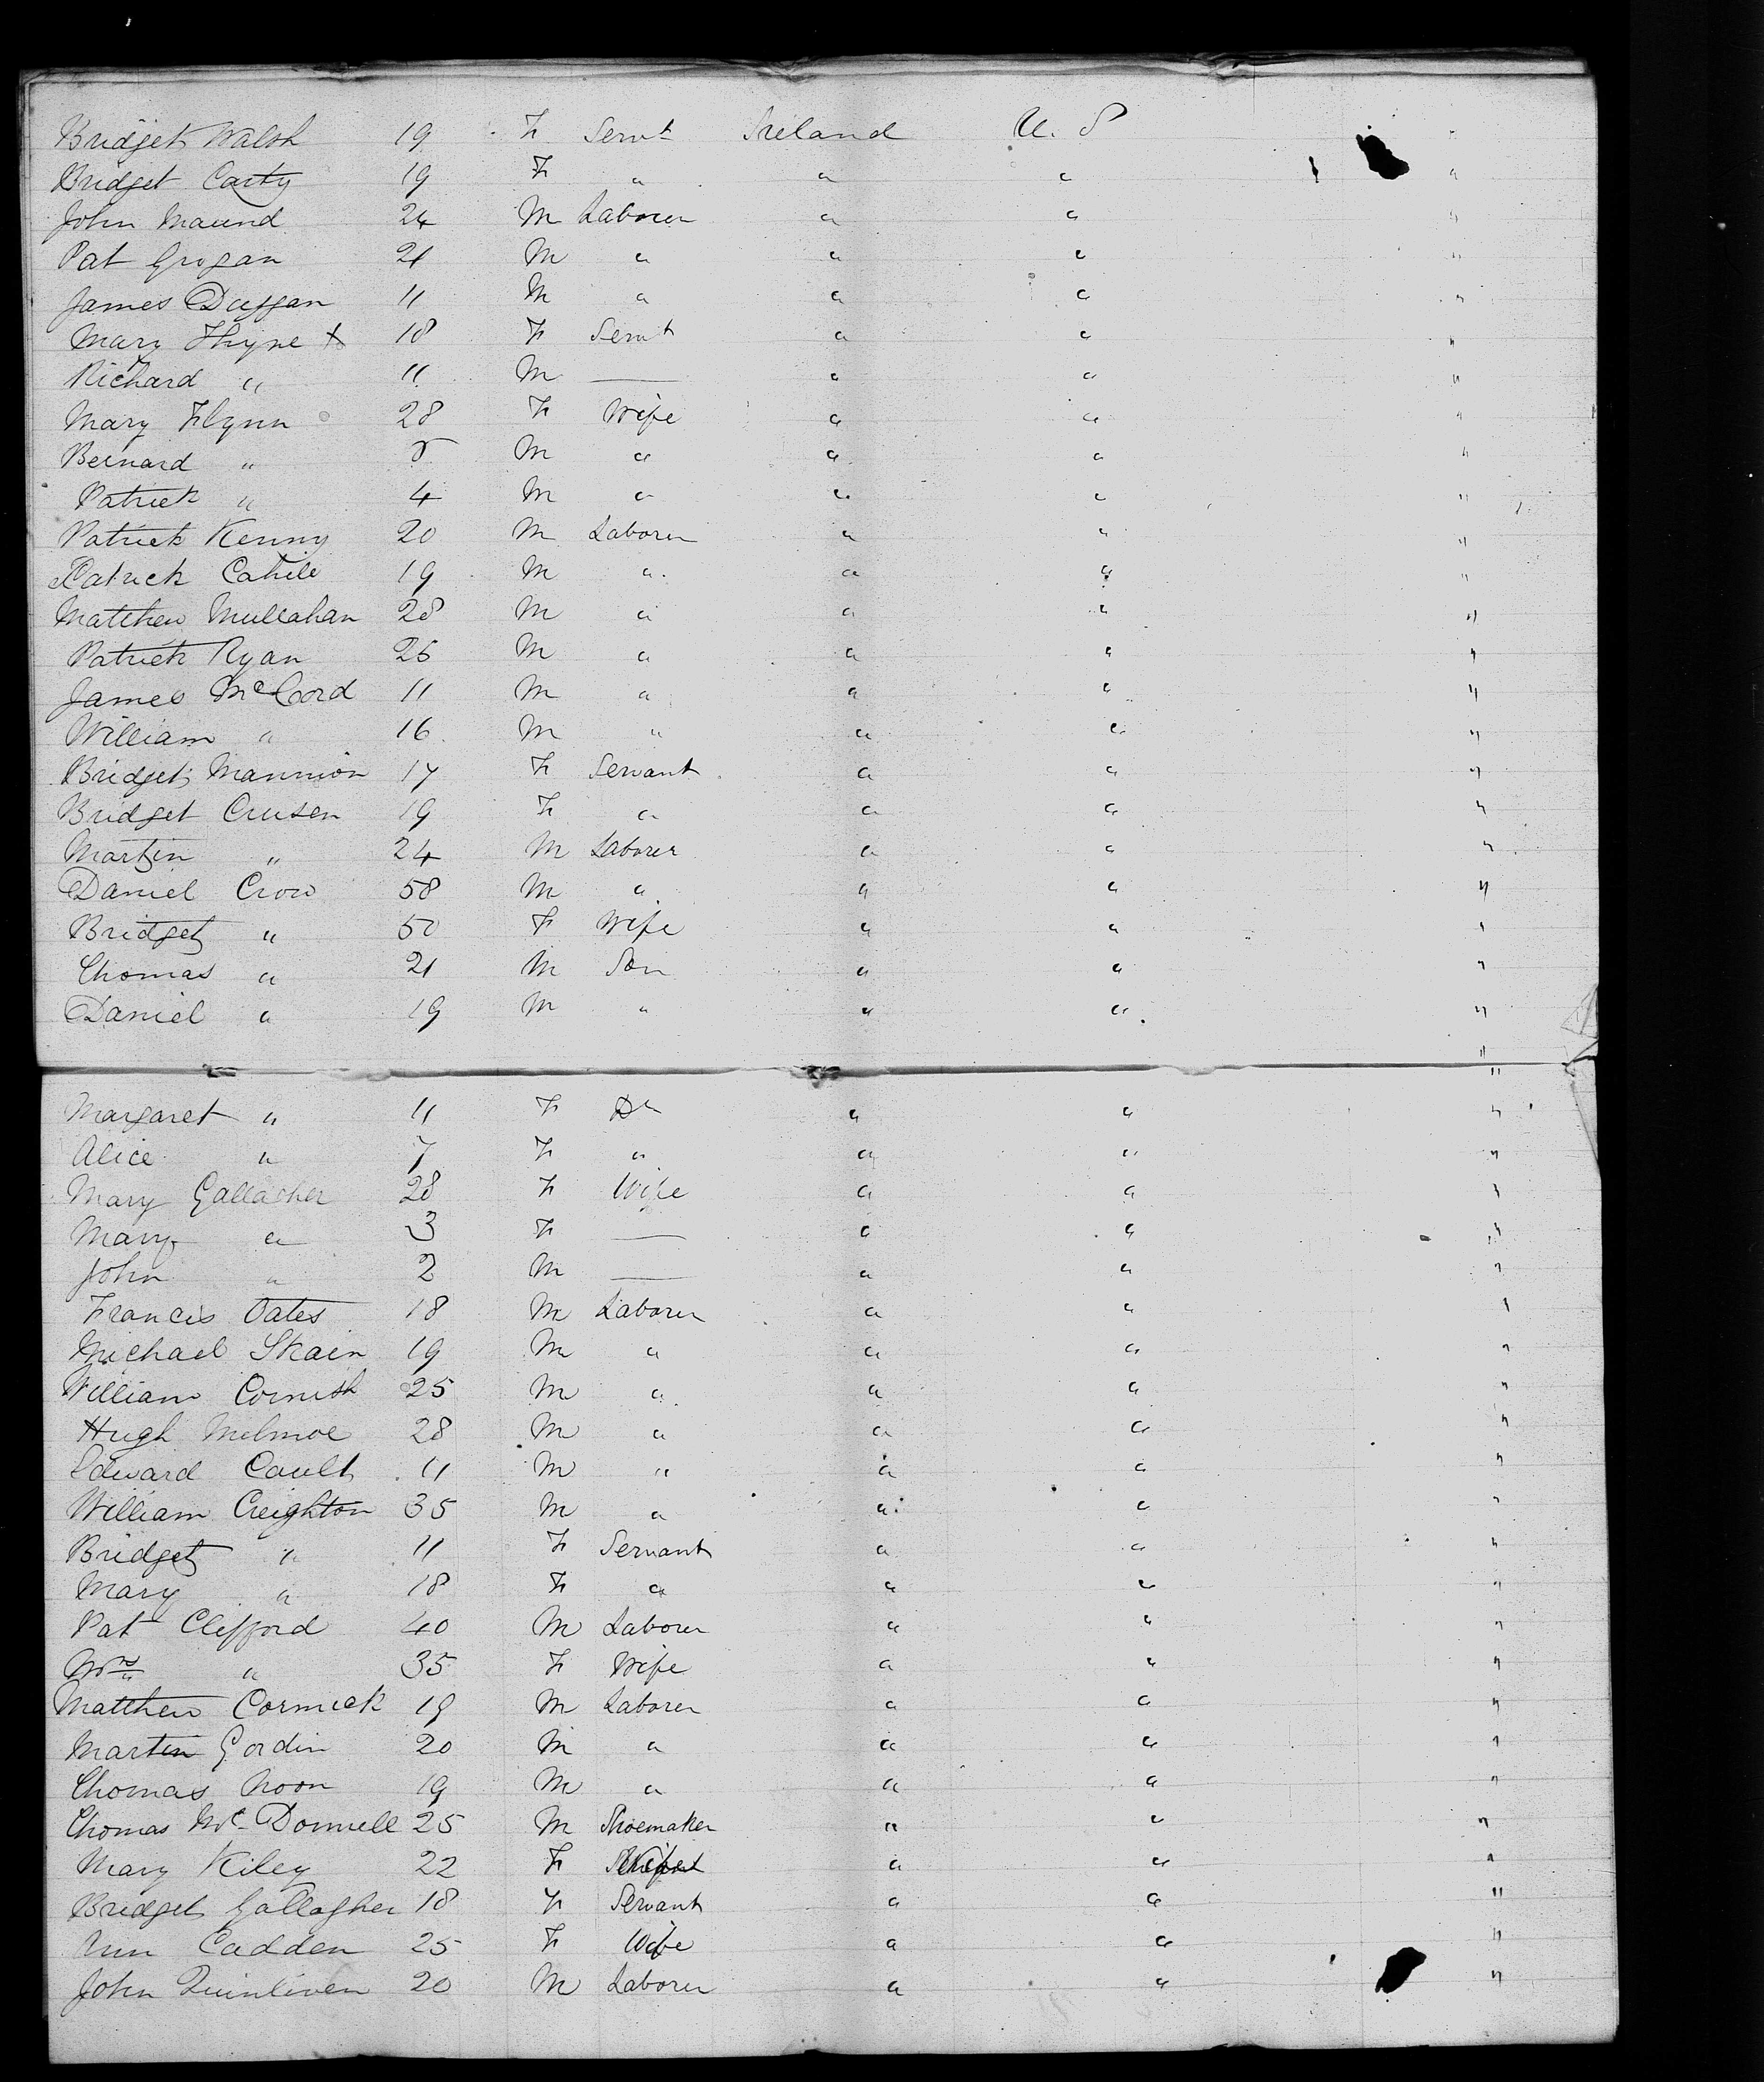 Bridget Walsh 19 F Servt Ireland U. S "
Bridget Carty 19 F " " " "
John Maund 24 M Laborer " " "
Pat Grogan 21 M " " " "
James Duggan 11 M " " " "
Mary Thyne 18 F Servt " " "
Richard " 11 M — " " "
Mary Flynn 28 F Wife " " "
Bernard " M " " " "
Patrick " 4 M " " " "
Patrick Kenny 20 M Laborer " " "
Patrick Cahile 19 M " " " "
Matthew Mullahan 28 M " " " "
Patrick Ryan 25 M " " " "
James McCord 11 M " " " "
William " 16 M " " " "
Bridget Mannion 17 F Servant " " "
Bridget Crusen 19 F " " " "
Martin " 24 M Laborer " " "
Daniel Crow 58 M " " " "
Bridget " 50 F Wife " " "
Thomas " 21 M Son " " "
Daniel " 19 M " " " "
"
"
Margaret " 11 F Dr " " "
Alice " 7 F " " " "
Mary Gallagher 28 F Wife " " "
Mary " 3 F — " " "
John " 2 M — " " "
Francis Oates 18 M Laborer " " "
Michael Skain 19 M " " " "
William Cornish 25 M " " " "
Hugh Melmoe 28 M " " " "
Edward Coult 11 M " " " "
William Creighton 35 M " " " "
Bridget " 11 F Servant " " "
Mary " 18 F " " " "
Pat Clifford 40 M Laborer " " "
Mrs " 35 F Wife " " "
Matthew Cormick 19 M Laborer " " "
Martin Gordin 20 M " " " "
Thomas Noon 19 M " " " "
Thomas Mc Donnell 25 M Shoemaker " " "
Mary Kiley 22 F " " "
Bridget Gallagher 18 F Servant " " "
Ann Cadden 25 F Wife " " "
John Quinliven 20 M Laborer " " "